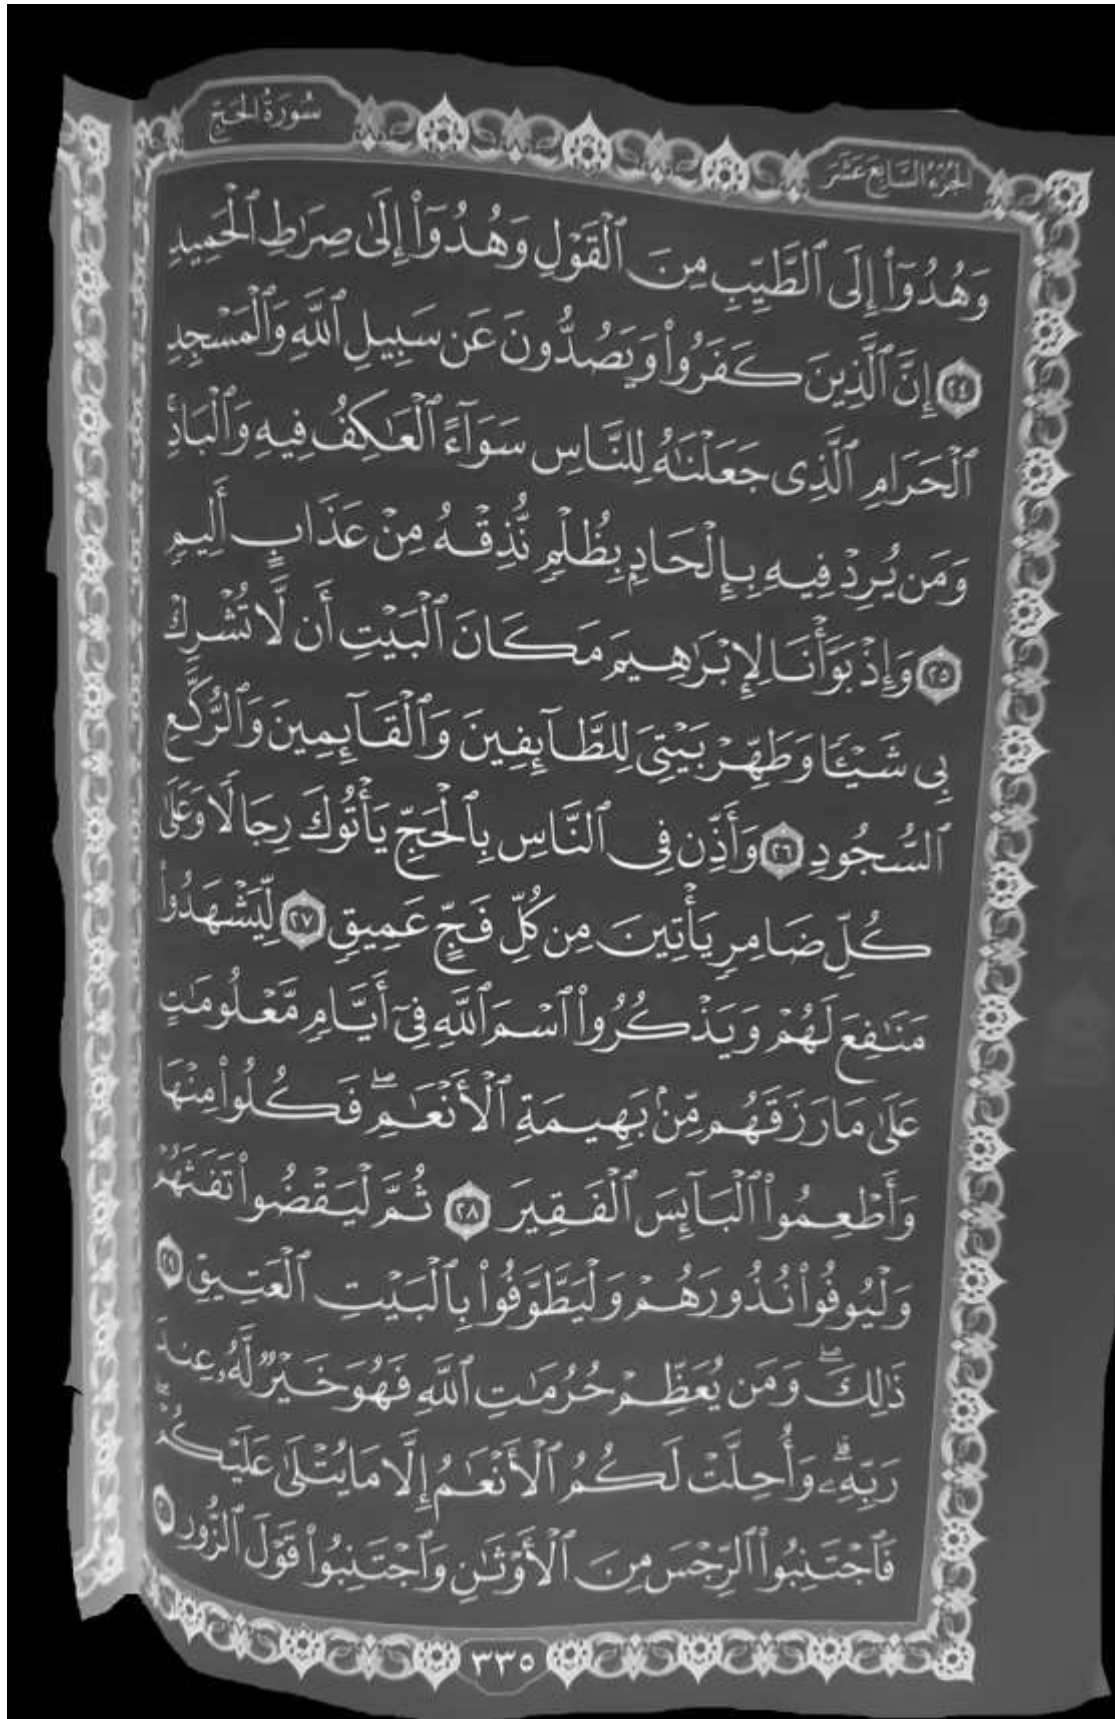 الجزء السابع عشر
سورة الحج
وَهُدُوٓاْ إِلَى ٱلطَّيِّبِ مِنَ ٱلْقَوْلِ وَهُدُوٓاْ إِلَىٰ صِرَٰطِ ٱلْحَمِيدِ
٢٤ إِنَّ ٱلَّذِينَ كَفَرُواْ وَيَصُدُّونَ عَن سَبِيلِ ٱللَّهِ وَٱلْمَسْجِدِ
ٱلْحَرَامِ ٱلَّذِى جَعَلْنَٰهُ لِلنَّاسِ سَوَآءً ٱلْعَٰكِفُ فِيهِ وَٱلْبَادِۚ
وَمَن يُرِدْ فِيهِ بِإِلْحَادٍۭ بِظُلْمٍ نُّذِقْهُ مِنْ عَذَابٍ أَلِيمٍ
٢٥ وَإِذْ بَوَّأْنَا لِإِبْرَٰهِيمَ مَكَانَ ٱلْبَيْتِ أَن لَّا تُشْرِكْ
بِى شَيْـًٔا وَطَهِّرْ بَيْتِىَ لِلطَّآئِفِينَ وَٱلْقَآئِمِينَ وَٱلرُّكَّعِ
ٱلسُّجُودِ ٢٦ وَأَذِّن فِى ٱلنَّاسِ بِٱلْحَجِّ يَأْتُوكَ رِجَالًا وَعَلَىٰ
كُلِّ ضَامِرٍ يَأْتِينَ مِن كُلِّ فَجٍّ عَمِيقٍ ٢٧ لِّيَشْهَدُواْ
مَنَٰفِعَ لَهُمْ وَيَذْكُرُواْ ٱسْمَ ٱللَّهِ فِىٓ أَيَّامٍ مَّعْلُومَٰتٍ
عَلَىٰ مَا رَزَقَهُم مِّنۢ بَهِيمَةِ ٱلْأَنْعَٰمِۖ فَكُلُواْ مِنْهَا
وَأَطْعِمُواْ ٱلْبَآئِسَ ٱلْفَقِيرَ ٢٨ ثُمَّ لْيَقْضُواْ تَفَثَهُمْ
وَلْيُوفُواْ نُذُورَهُمْ وَلْيَطَّوَّفُواْ بِٱلْبَيْتِ ٱلْعَتِيقِ ٢٩
ذَٰلِكَۖ وَمَن يُعَظِّمْ حُرُمَٰتِ ٱللَّهِ فَهُوَ خَيْرٌ لَّهُۥ عِندَ
رَبِّهِۦۗ وَأُحِلَّتْ لَكُمُ ٱلْأَنْعَٰمُ إِلَّا مَا يُتْلَىٰ عَلَيْكُمْۖ
فَٱجْتَنِبُواْ ٱلرِّجْسَ مِنَ ٱلْأَوْثَٰنِ وَٱجْتَنِبُواْ قَوْلَ ٱلزُّورِ
٣٣٥